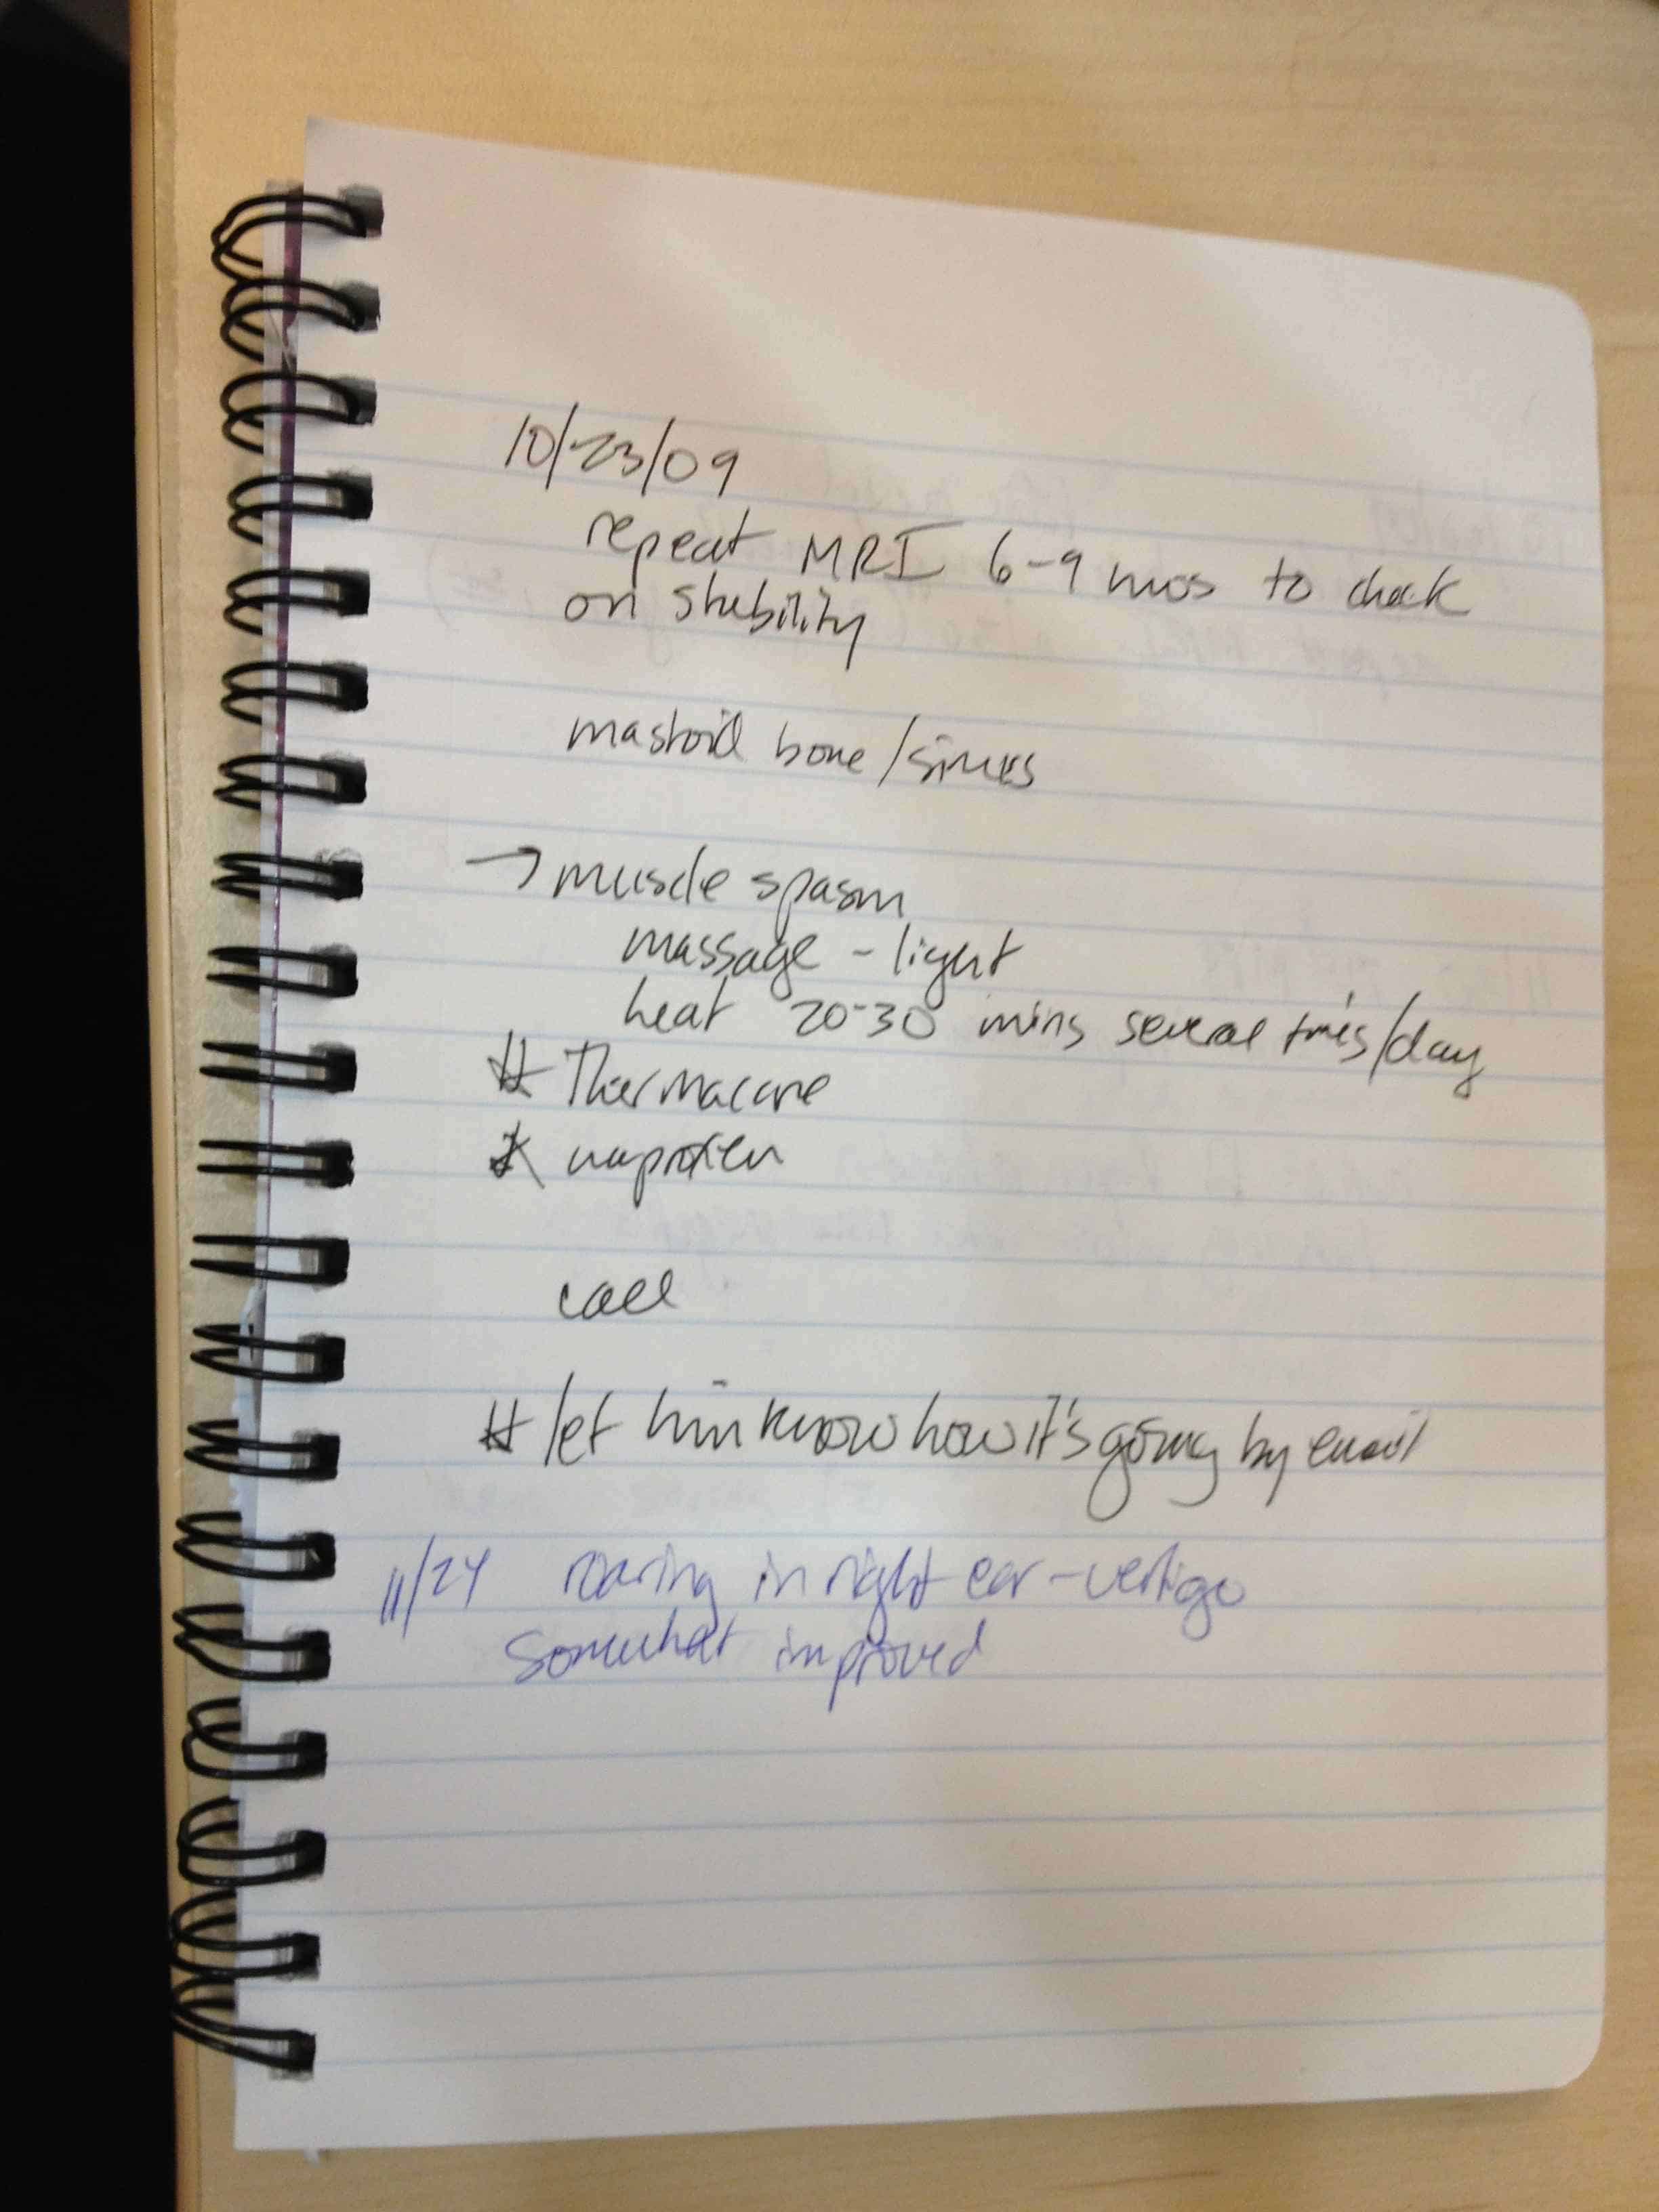 10/23/09
repeat MRI 6-9 mos to check
on stability
mastoid bone/sinuses
→ muscle spasm
massage - light
heat 20-30 mins several times/day
* Thermacare
* naproxen
call
* let him know how it's going by email
11/24 roaring in right ear - vertigo
somewhat improved